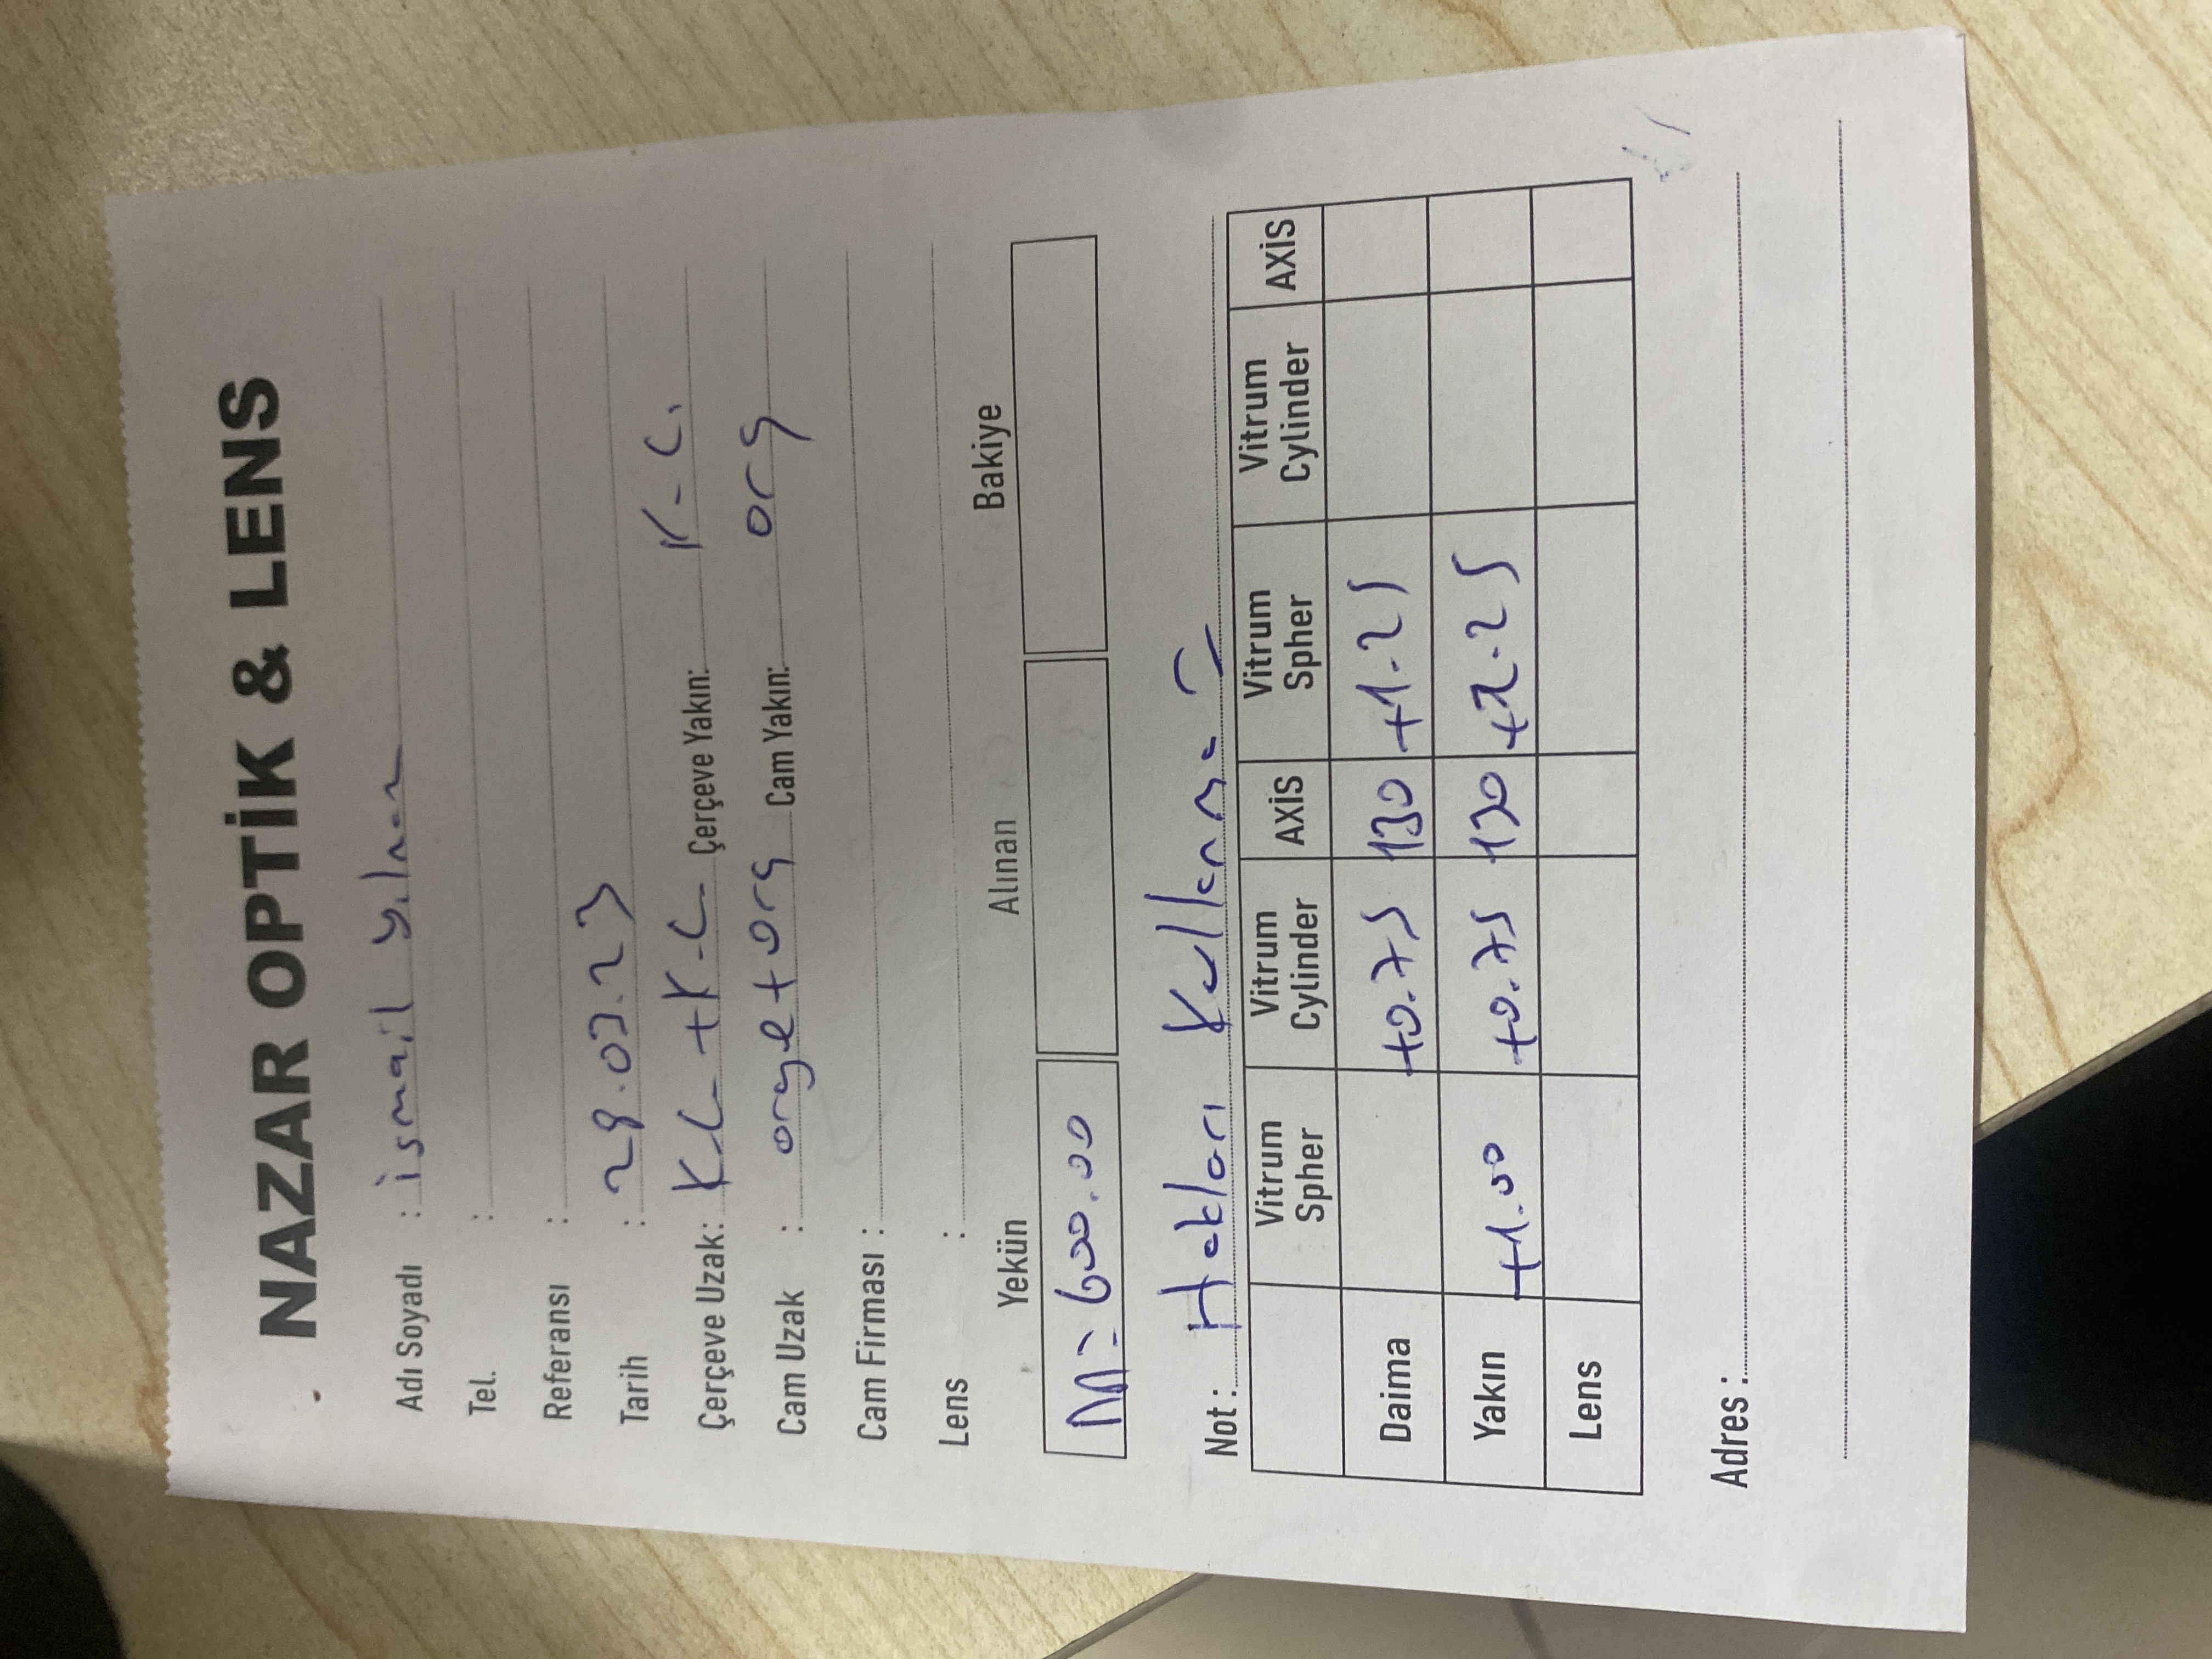 NAZAR OPTİK & LENS
Adı Soyadı : ismail Yılmaz
Tel. :
Referansı :
Tarih : 28.03.23
Çerçeve Uzak: K.C + K.C Çerçeve Yakın: K-C.
Cam Uzak : orge + org Cam Yakın: org
Cam Firması :
Lens :
Yekün Alınan Bakiye
M= 600.00
Not : Hakları Kullanma
Vitrum Spher Vitrum Cylinder AXİS Vitrum Spher Vitrum Cylinder AXİS
Daima +0.75 130 +1.25
Yakın +1.00 +0.75 130 +2.25
Lens
Adres :